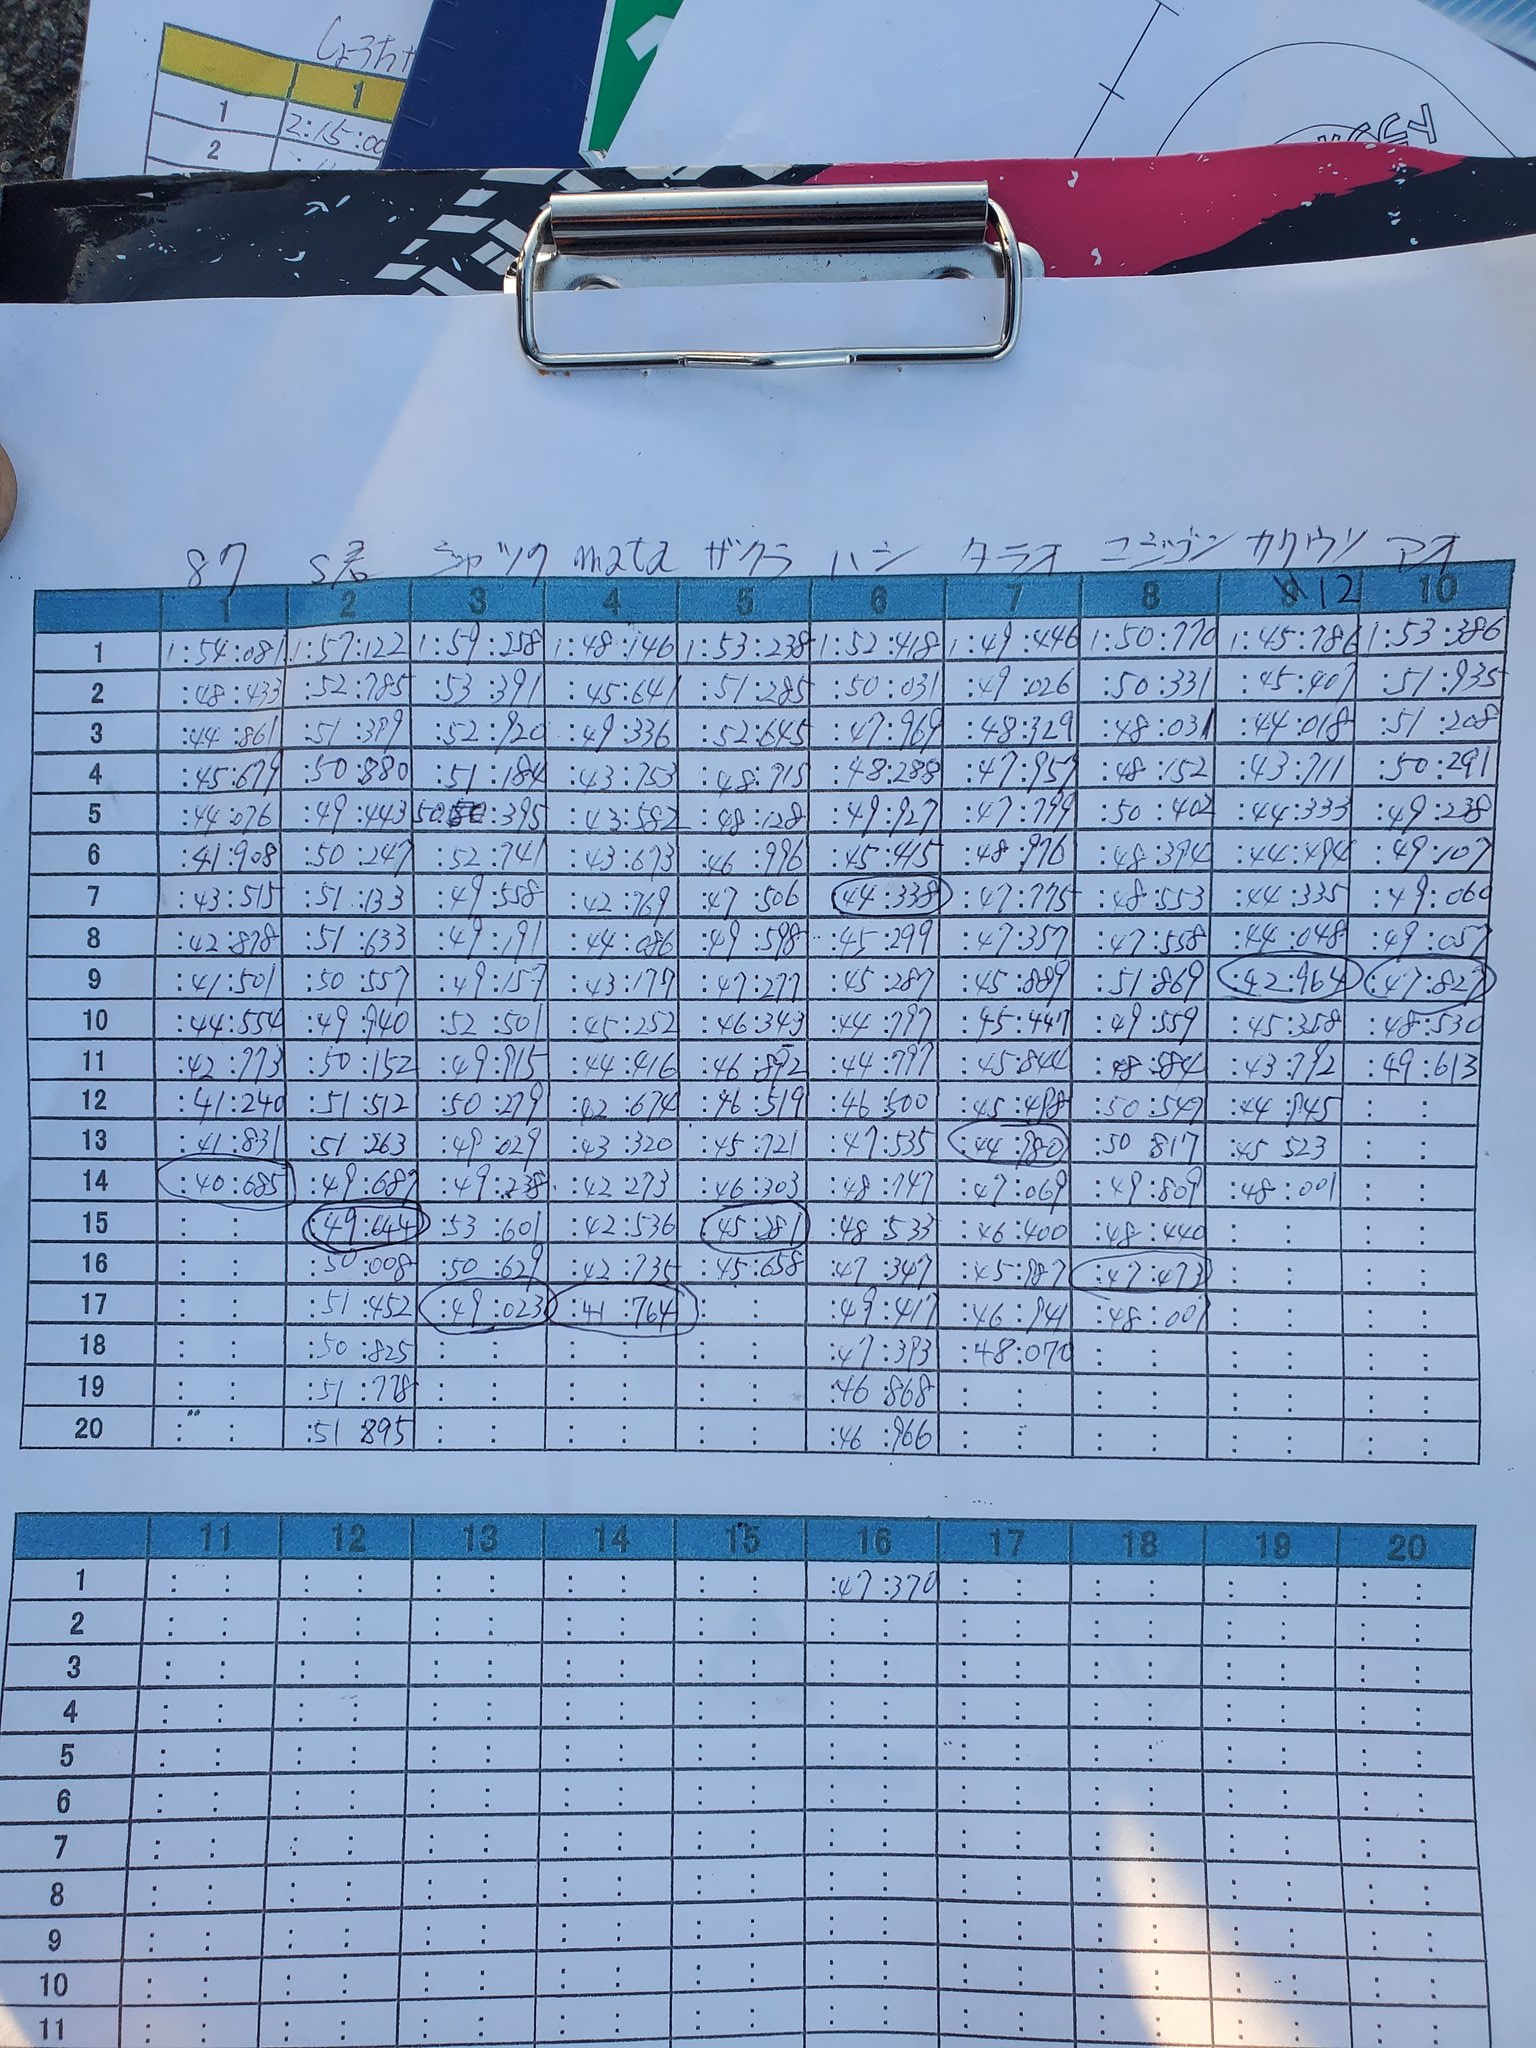 しょうちゃ
1
1 2:15:00
2
87 S君 シャツク mata ザクラ ハシ タラオ コジゴン カクウソ アオ
1 2 3 4 5 6 7 8 12 10
1 1:54:081 1:57:122 1:59:258 1:48:146 1:53:238 1:52:418 1:49:446 1:50:770 1:45:786 1:53:386
2 :48:433 :52:785 :53:391 :45:641 :51:285 :50:031 :49:026 :50:331 :45:407 :51:935
3 :44:861 :51:379 :52:920 :49:336 :52:645 :47:969 :48:329 :48:031 :44:018 :51:208
4 :45:679 :50:880 :51:184 :43:753 :48:715 :48:288 :47:957 :48:152 :43:711 :50:291
5 :44:076 :49:443 50:395 :43:582 :48:128 :49:927 :47:799 :50:402 :44:333 :49:238
6 :41:908 :50:247 :52:741 :43:673 :46:996 :45:415 :48:976 :48:394 :44:494 :49:107
7 :43:515 :51:133 :49:558 :42:769 :47:506 :44:338 :47:775 :48:553 :44:335 :49:060
8 :42:878 :51:633 :49:191 :44:086 :49:598 :45:299 :47:357 :47:558 :44:048 :49:057
9 :41:501 :50:557 :49:157 :43:177 :47:277 :45:287 :45:889 :51:869 :42:964 :47:827
10 :44:554 :49:940 :52:501 :45:252 :46:343 :44:797 :45:447 :49:559 :45:358 :48:530
11 :42:773 :50:152 :49:915 :44:416 :46:892 :44:797 :45:844 :48:884 :43:792 :49:613
12 :41:240 :51:512 :50:279 :42:674 :46:519 :46:500 :45:498 :50:549 :44:945 : :
13 :41:831 :51:263 :49:029 :43:320 :45:721 :47:535 :44:980 :50 817 :45 523 : :
14 :40:685 :49:687 :49:238 :42 273 :46:303 :48:747 :47:069 :49:809 :48:001 : :
15 : : :49:644 :53:601 :42:536 :45:281 :48:533 :46:400 :48:440 : : : :
16 : : :50:008 :50:629 :42:735 :45:658 :47:347 :45:987 :47:473 : : : :
17 : : :51:452 :49:023 :41:764 : : :49:417 :46:941 :48:001 : : : :
18 : : :50:825 : : : : : : :47:393 :48:070 : : : : : :
19 : : :51:778 : : : : : : :46:868 : : : : : : : :
20 : : :51 895 : : : : : : :46:966 : : : : : : : :
11 12 13 14 15 16 17 18 19 20
1 : : : : : : : : : : :47:370 : : : : : : : :
2 : : : : : : : : : : : : : : : : : : : :
3 : : : : : : : : : : : : : : : : : : : :
4 : : : : : : : : : : : : : : : : : : : :
5 : : : : : : : : : : : : : : : : : : : :
6 : : : : : : : : : : : : : : : : : : : :
7 : : : : : : : : : : : : : : : : : : : :
8 : : : : : : : : : : : : : : : : : : : :
9 : : : : : : : : : : : : : : : : : : : :
10 : : : : : : : : : : : : : : : : : : : :
11 : : : : : : : : : : : : : : : : : : : :